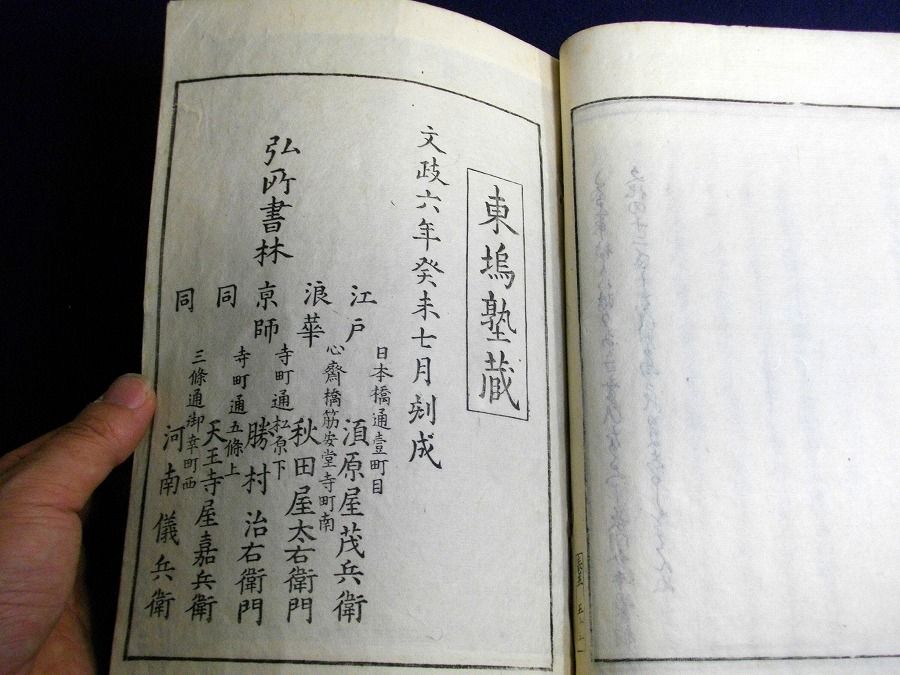 東塢塾蔵
文政六年癸未七月刻成
弘所書林
江戸 日本橋通壹町目 須原屋茂兵衛
浪華 心齋橋筋安堂寺町南 秋田屋太右衛門
京師 寺町通松原下 勝村治右衛門
同 寺町通五條上 天王寺屋嘉兵衛
同 三條通御幸町西 河南儀兵衛